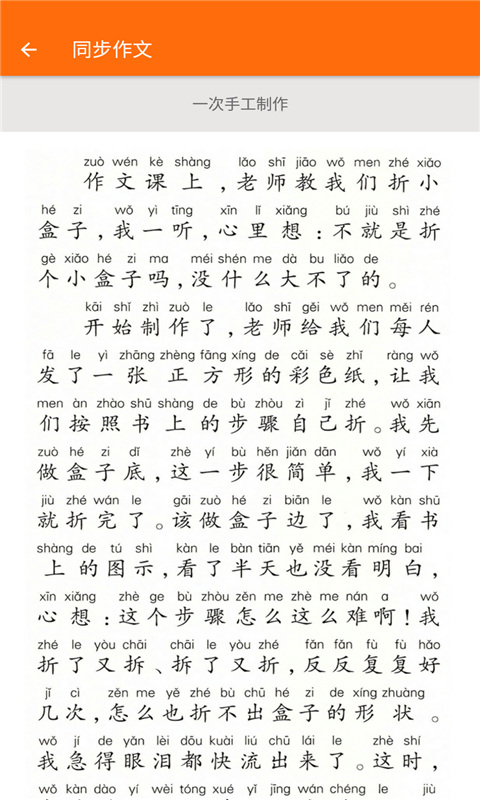 同步作文
一次手工制作
zuò wén kè shàng lǎo shī jiāo wǒ men zhé xiǎo
作文课上,老师教我们折小
hé zi wǒ yì tīng xīn lǐ xiǎng bú jiù shì zhé
盒子,我一听,心里想:不就是折
gè xiǎo hé zi ma méi shén me dà bu liǎo de
个小盒子吗,没什么大不了的。
kāi shǐ zhì zuò le lǎo shī gěi wǒ men měi rén
开始制作了,老师给我们每人
fā le yì zhāng zhèng fāng xíng de cǎi sè zhǐ ràng wǒ
发了一张正方形的彩色纸,让我
men àn zhào shū shàng de bù zhòu zì jǐ zhé wǒ xiān
们按照书上的步骤自己折。我先
zuò hé zi dǐ zhè yí bù hěn jiǎn dān wǒ yí xià
做盒子底,这一步很简单,我一下
jiù zhé wán le gāi zuò hé zi biān le wǒ kàn shū
就折完了。该做盒子边了,我看书
shàng de tú shì kàn le bàn tiān yě méi kàn míng bai
上的图示,看了半天也没看明白,
xīn xiǎng zhè ge bù zhòu zěn me zhè me nán a wǒ
心想:这个步骤怎么这么难啊!我
zhé le yòu chāi chāi le yòu zhé fǎn fǎn fù fù hǎo
折了又拆、拆了又折,反反复复好
jǐ cì zěn me yě zhé bù chū hé zi de xíng zhuàng
几次,怎么也折不出盒子的形状。
wǒ jí de yǎn lèi dōu kuài liú chū lái le zhè shí
我急得眼泪都快流出来了。这时,
wǒ kàn dào yí wèi tóng xué yǐ jīng wán chéng le jiù